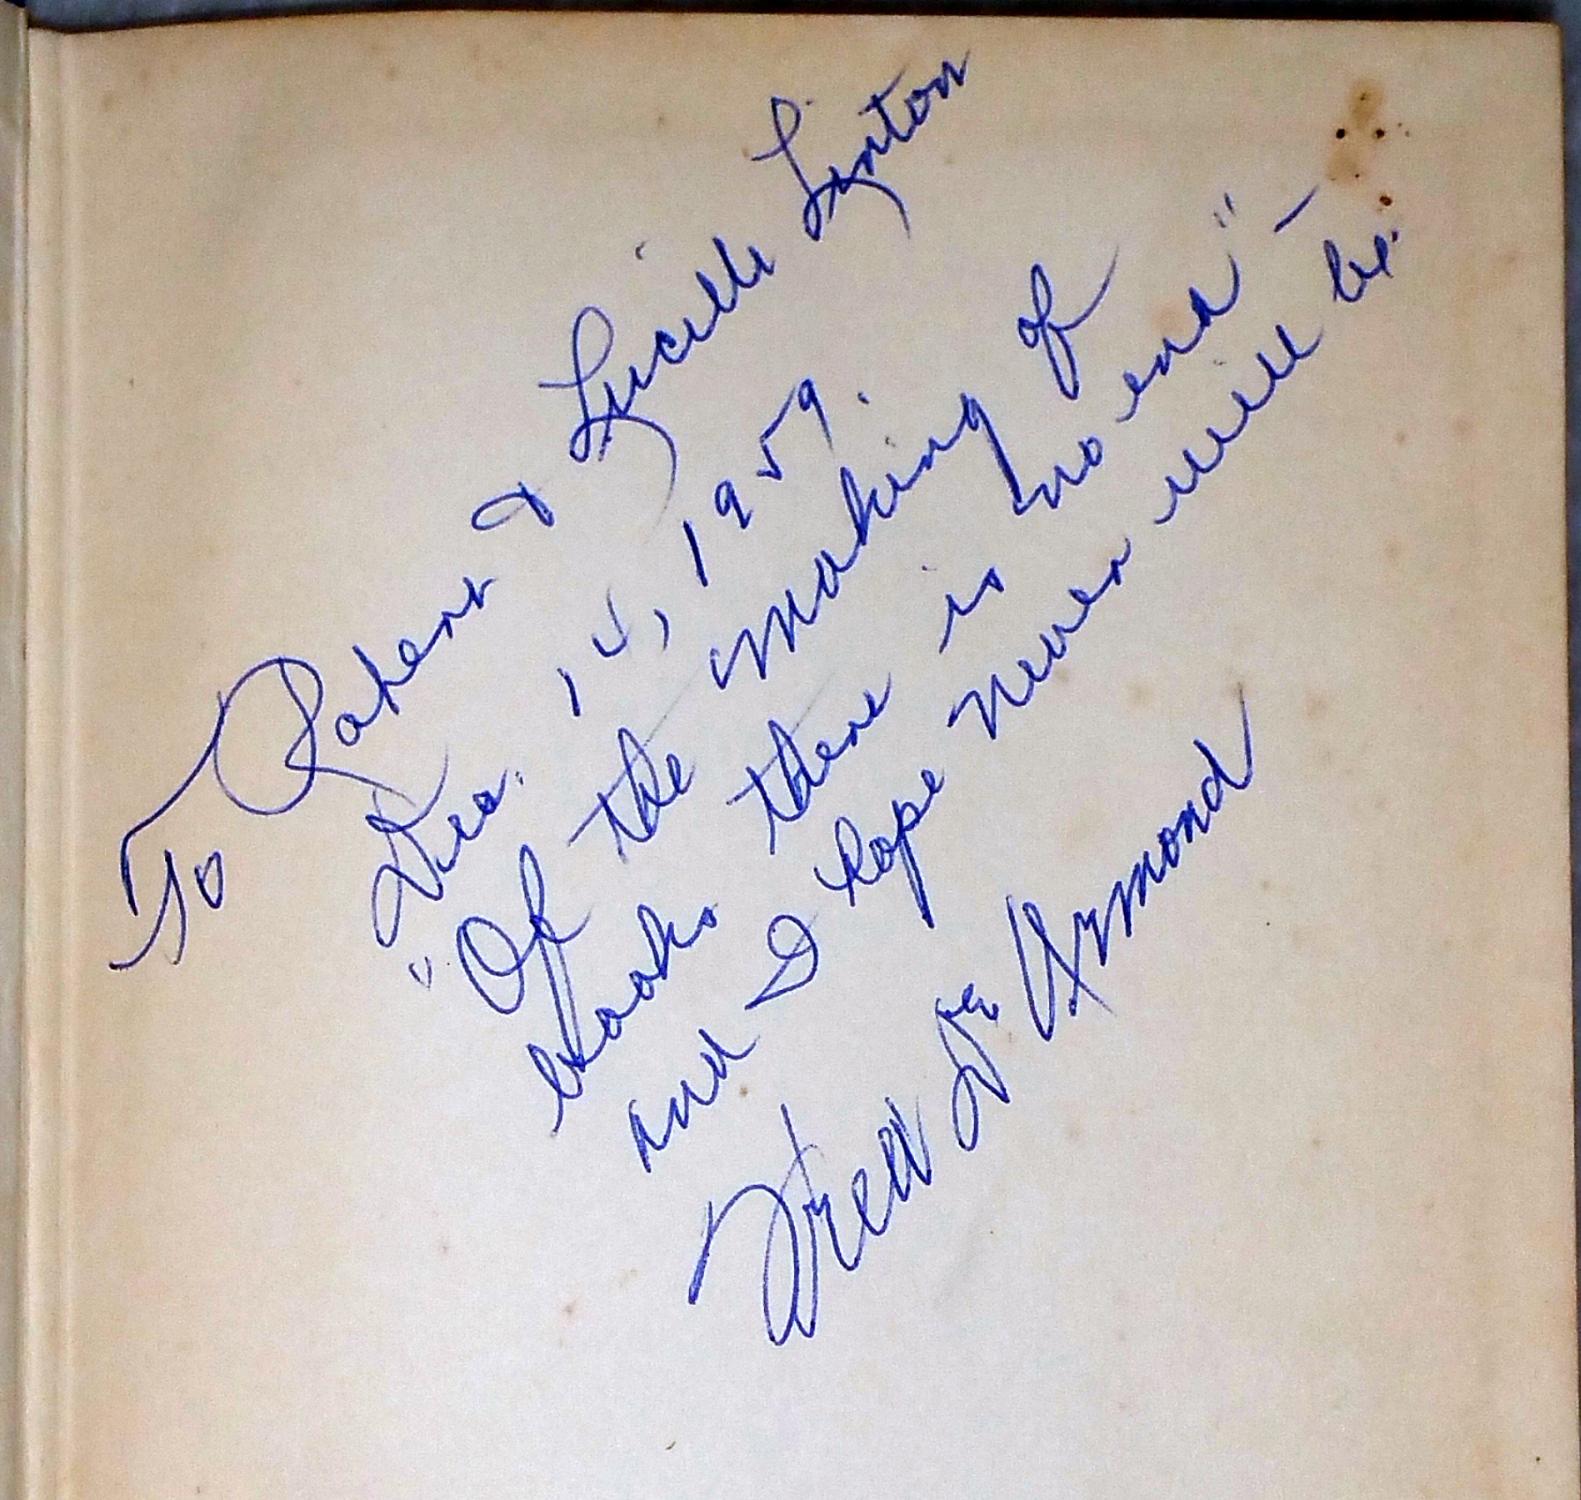 To Robert & Lucille Linton
Dec. 14, 1959.
"Of the making of
books there is no end" –
and I hope never will be.
Fred De Armond